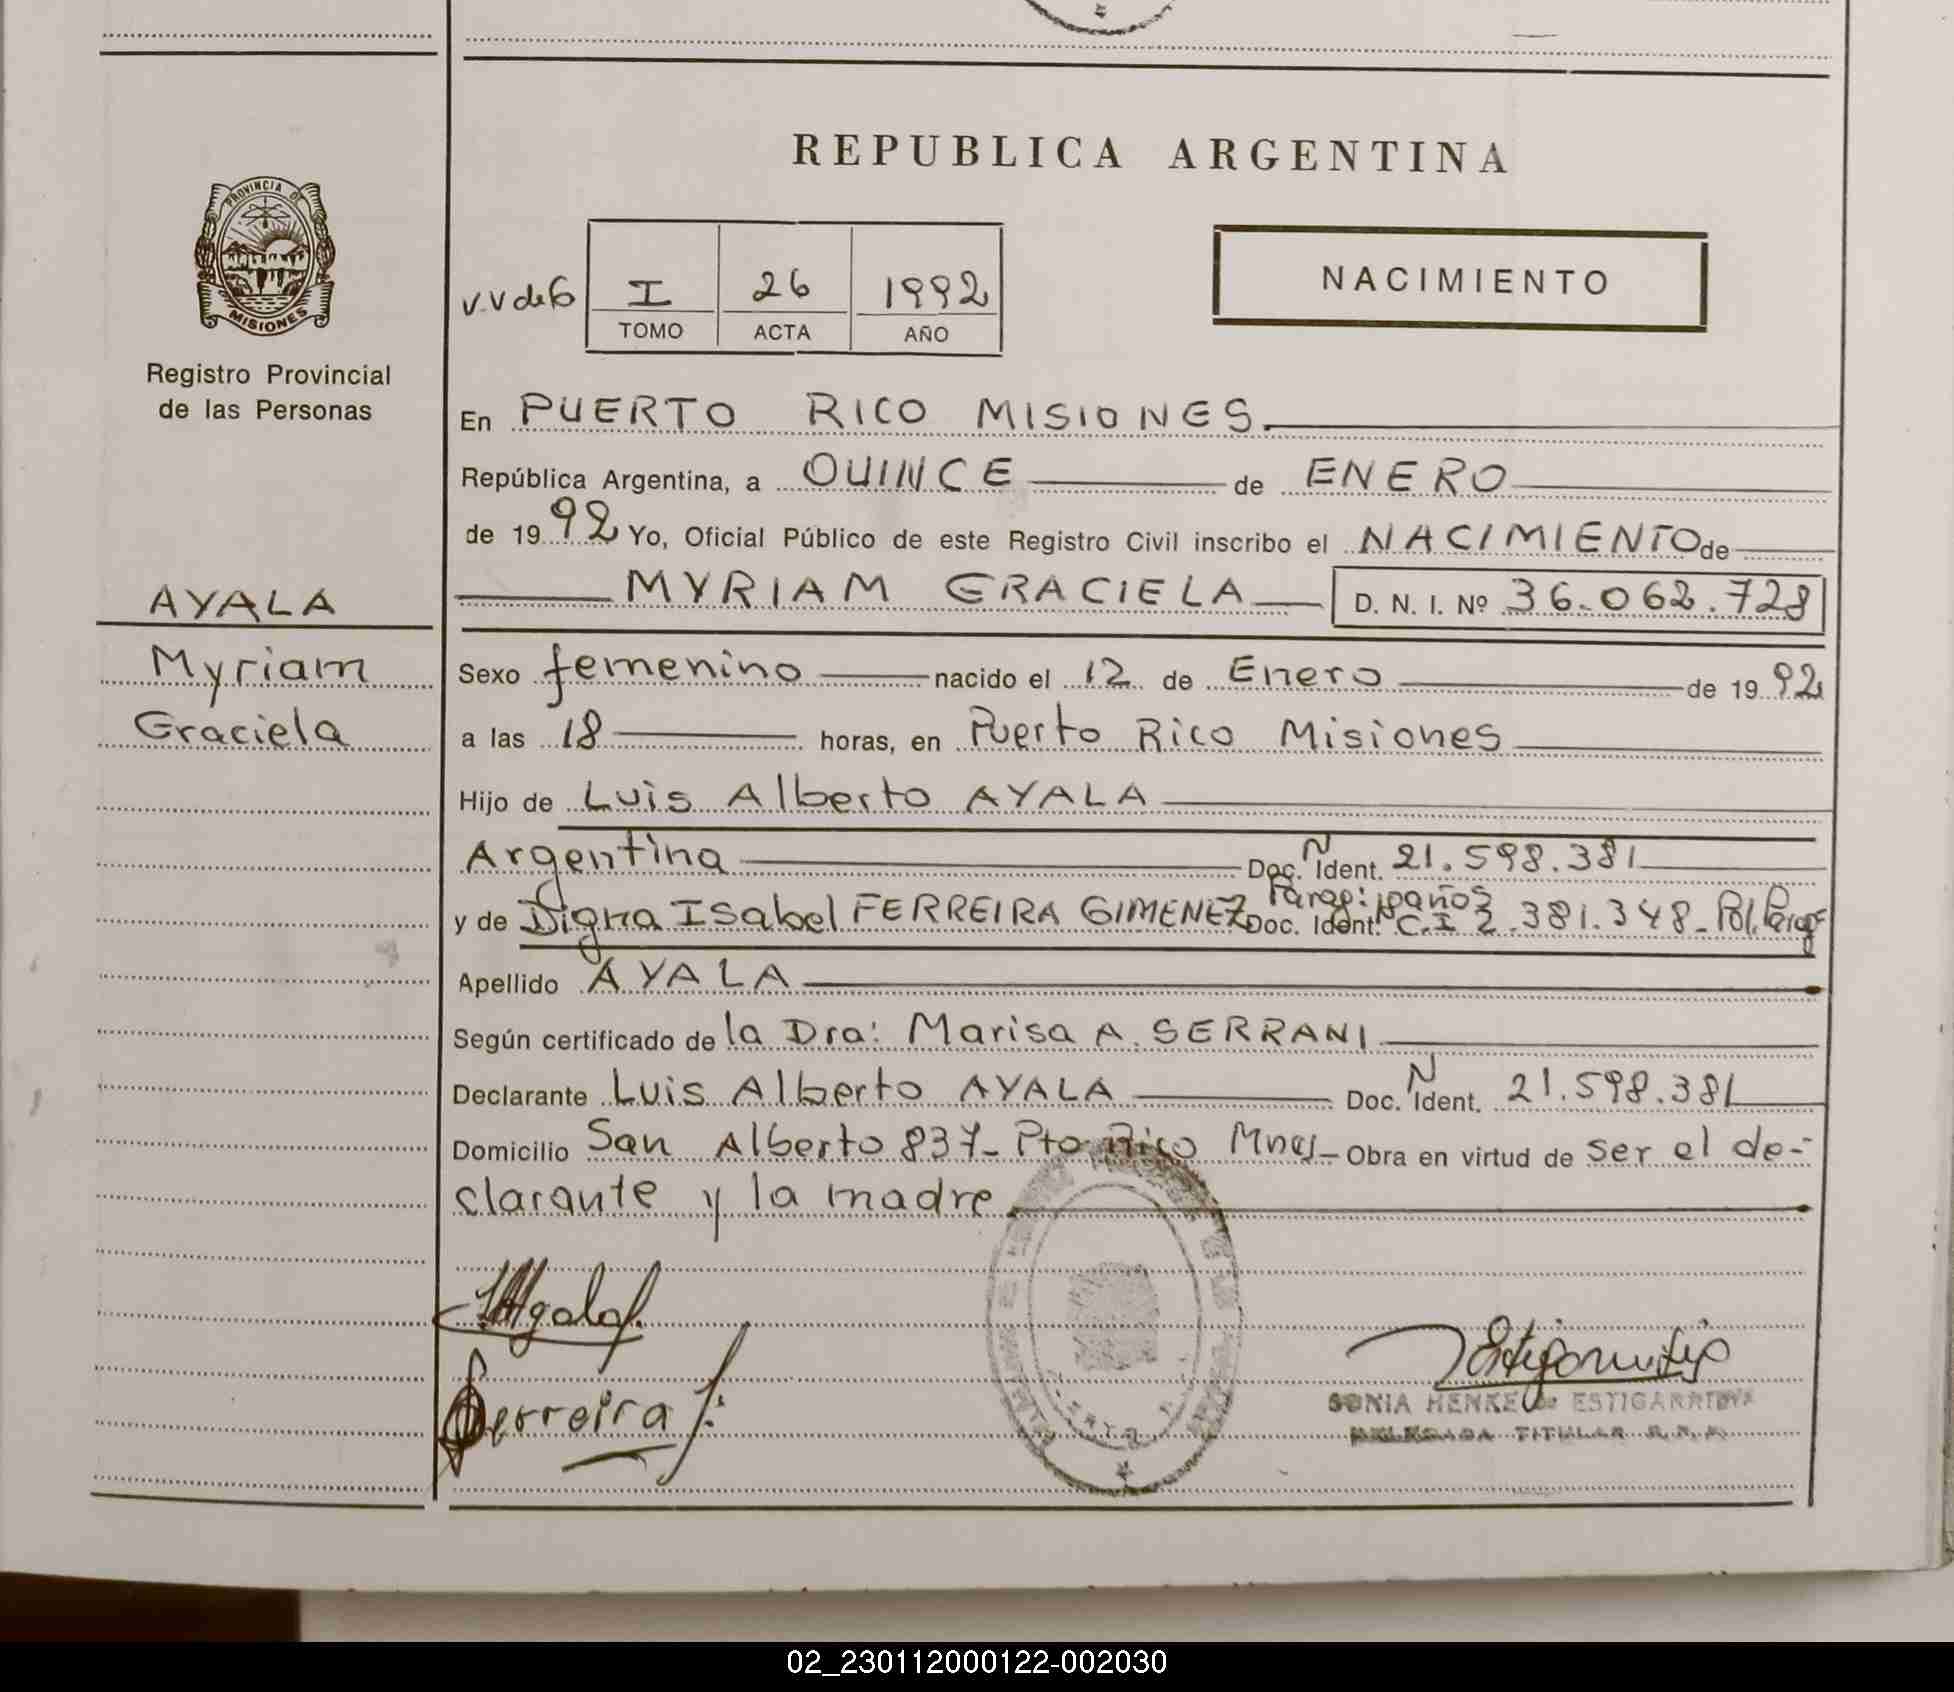 REPUBLICA ARGENTINA
PROVINCIA DE
MISIONES
Registro Provincial
de las Personas
NACIMIENTO
I 26 1992
TOMO ACTA AÑO
En PUERTO RICO MISIONES.
República Argentina, a QUINCE de ENERO
de 1992 Yo, Oficial Público de este Registro Civil inscribo el NACIMIENTO de
MYRIAM GRACIELA D. N. I. Nº 36.062.728
AYALA
Myriam
Graciela
Sexo femenino nacido el 12 de Enero de 1992
a las 18 horas, en Puerto Rico Misiones
Hijo de Luis Alberto AYALA
Argentina Doc. N Ident. 21.598.381
y de Digna Isabel FERREIRA GIMENEZ Doc. Ident. C.I 2.381.348-Pol.
Apellido AYALA
Según certificado de la Dra: Marisa A. SERRANI
Declarante Luis Alberto AYALA Doc. N Ident. 21.598.381
Domicilio San Alberto 837- Pto Rico Mnes- Obra en virtud de ser el de-
clarante y la madre.
Ferreira
SONIA HENKE de ESTIGARRIBIA
DELEGADA TITULAR R.P.P.
02_230112000122-002030